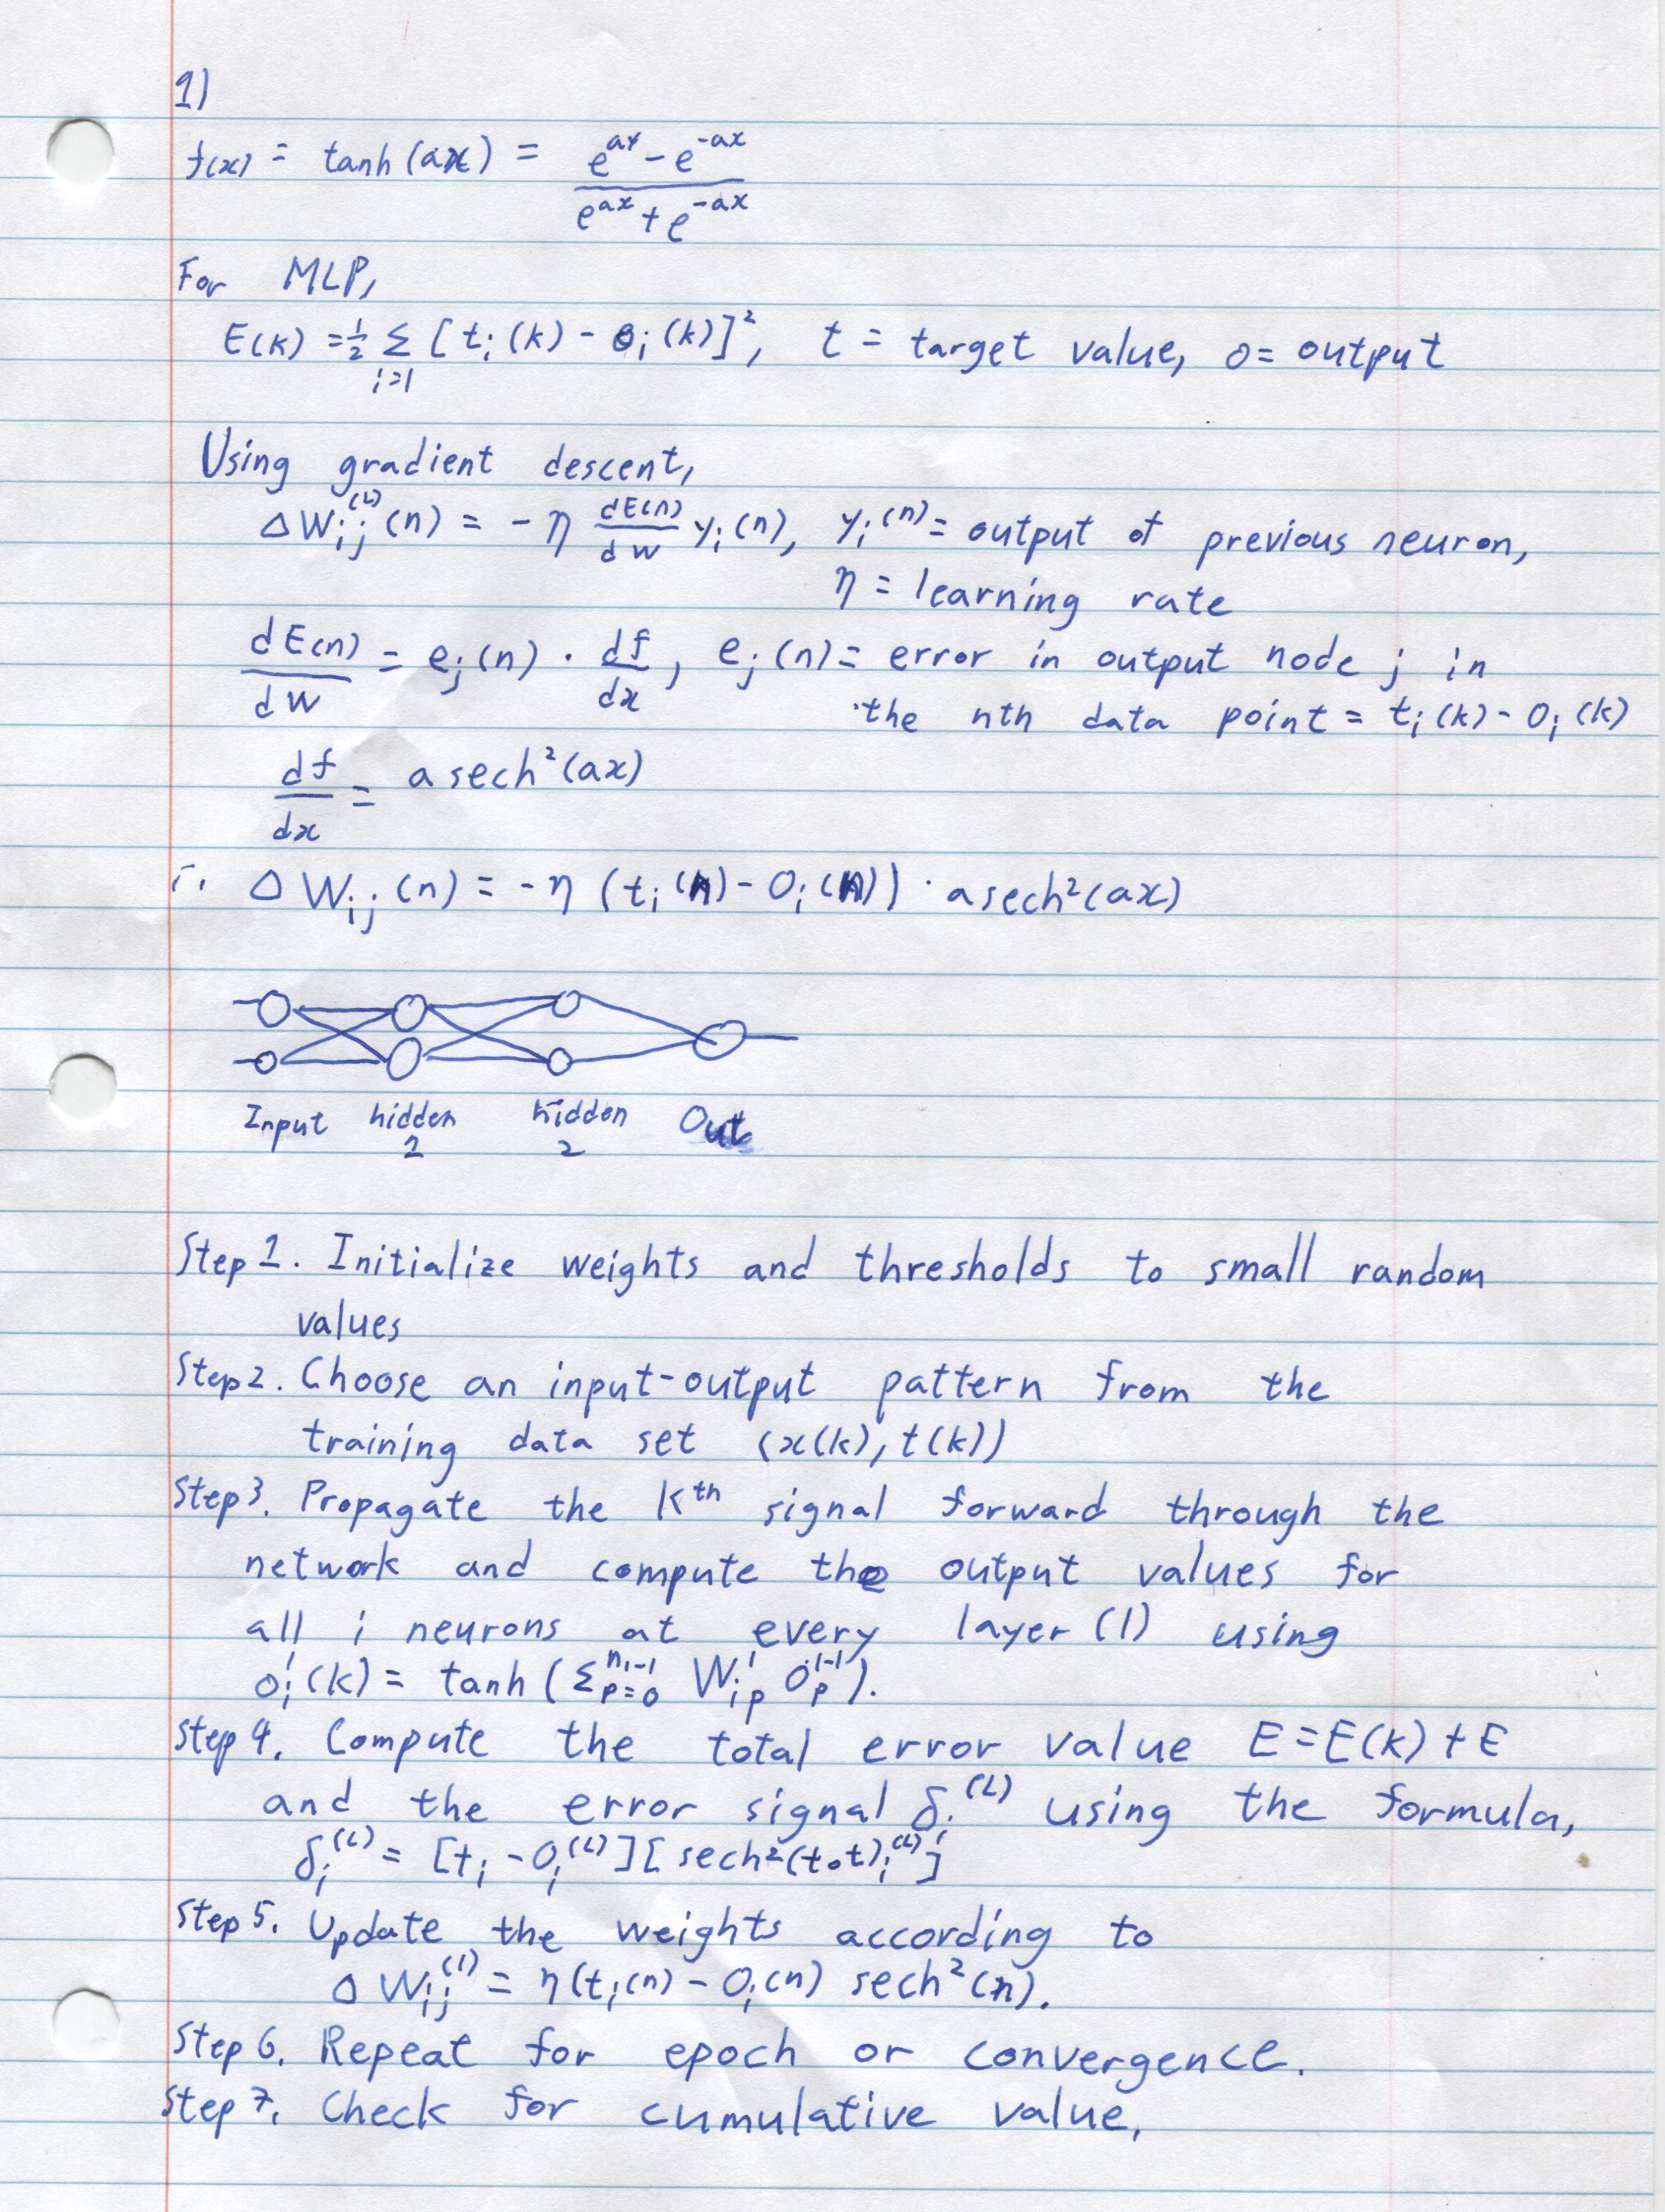 1)
f(x) = tanh(ax) = (e^{ax} - e^{-ax}) / (e^{ax} + e^{-ax})
For MLP,
E(k) = 1/2 Σ_{i=1} [t_i(k) - o_i(k)]², t = target value, o = output
Using gradient descent,
ΔW_{ij}^{(L)}(n) = -η dE(n)/dw y_i(n), y_i(n) = output of previous neuron,
η = learning rate
dE(n)/dW = e_j(n) · df/dx, e_j(n) = error in output node j in
the nth data point = t_i(k) - o_i(k)
df/dx = a sech²(ax)
∴ ΔW_{ij}(n) = -η (t_i(n) - O_i(n)) · a sech²(ax)
Input hidden hidden Out
1 2
Step 1. Initialize weights and thresholds to small random
values
Step 2. Choose an input-output pattern from the
training data set (x(k), t(k))
Step 3. Propagate the kth signal forward through the
network and compute the output values for
all i neurons at every layer (l) using
o_i^l(k) = tanh (Σ_{p=0}^{n_{l-1}} W_{ip}^l o_p^{l-1}).
Step 4. Compute the total error value E = E(k) + E
and the error signal δ_i^{(L)} using the formula,
δ_i^{(L)} = [t_i - O_i^{(L)}][sech²(tot)_i^{(L)}]
Step 5. Update the weights according to
ΔW_{ij}^{(l)} = η(t_i(n) - O_i(n) sech²(n).
Step 6. Repeat for epoch or convergence.
Step 7. Check for cumulative value.